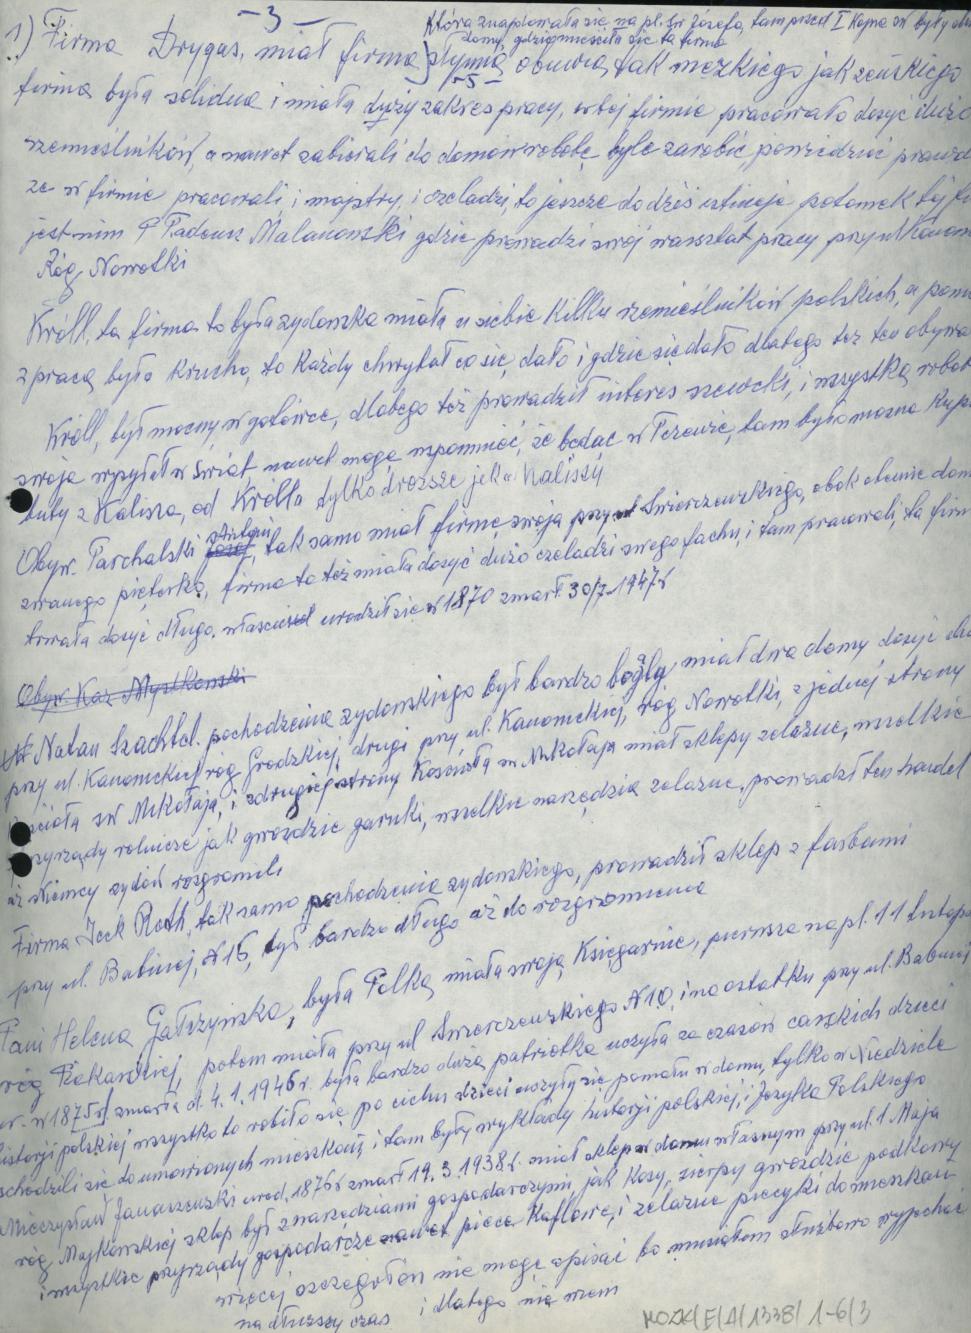 -3-
która znajdowała się na pl. św Józefa, tam przed I wojną św były
domy, gdzie mieściła się ta firma
1) Firma Drygas, miał firmę słynną obuwia, tak męzkiego jak żeńskiego
-5-
firma była solidna i miała duży zakres pracy, w tej firmie pracowało dosyć dużo
rzemieślników, a nawet zabierali do domów robotę byle zarobić, powiedzieć prawdę
że w firmie pracowali i majstry, i czeladzi, to jeszcze do dziś istnieje potomek tej
jest nim P Tadeusz Malanowski gdzie prowadzi swój warsztat pracy przy ul
Róg Nowotki
Króll, ta firma to była żydowska miała u siebie kilku rzemieślników polskich, a
z pracą było krucho, to każdy chwytał co się, dało i gdzie się dało dlatego też ten
Króll, był mocny w gotówce, dlatego też prowadził interes szewcki, i wszystką
swoją wysyłał w świat, nawet mogę wspomnieć, że będąc w Tczewie, tam było można
buty z Kalisza, od Królla tylko droższe jak w Kaliszy
Obyw. Parchalski Antoni, tak samo miał firmę swoją przy ul Świerczewskiego, obok obecnie
zwanego piętorko, firma to też miała dosyć dużo czeladzi swego fachu, i tam pracowali, ta
trwała dosyć długo. właściciel urodził się w 1870 zmarł 30/7 1947r
Obyw. Kaz Mystkowski
Natan Szachtel pochodzenia zydowskiego był bardzo bogaty miał dwa domy dosyć
przy ul. Kanonickiej róg Grodzkiej, drugi przy ul. Kanonickiej, róg Nowotki, z jednej strony
kościoła św Mikołaja, i z drugiej strony Kościoła św Mikołaja miał sklepy żelazne, wszelkie
przyrządy rolnicze jak gwoździe garnki, wszelkie narzędzia żelazne, prowadził ten handel
aż Niemcy żydów rozgromili
Firma Icek Roth, tak samo pochodzenia zydowskiego, prowadził sklep z farbami
przy ul. Babinej, N 15, był bardzo długo aż do rozgromienia
Pani Helena Gałczyńska, była Polką miała swoją Księgarnie, pierwsza na pl. 11
róg Piekarskiej, potem miała przy ul Świerczewskiego N 10, i na ostatku przy ul. Babinej
ur. w 1875r zmarła d. 4.1.1946r. była bardzo dużą patriotką uczyła za czasów carskich dzieci
historji polskiej wszystko to robiło się po cichu dzieci uczyły się pomału w domu, tylko w Niedziele
schodzili się do umówionych mieszkań i tam były wykłady historji polskiej, i Języka Polskiego
Mieczysław Januszewski urod. 1876r zmarł 19.3.1938r. miał sklep w domu własnym przy ul. 1 Maja
róg Majkowskiej sklep był z narzędziami gospodarczymi jak kosy, sierpy gwoździe podkowy
i wszystkie przyrządy gospodarcze nawet piece Kaflowe, i żelazne piecyki do mieszkań
więcej szczegółów nie mogę opisać bo musiałem służbowo wyjechać
na dłuższy czas i dlatego nie wiem
MOZK/E/A/1338/1-6/3